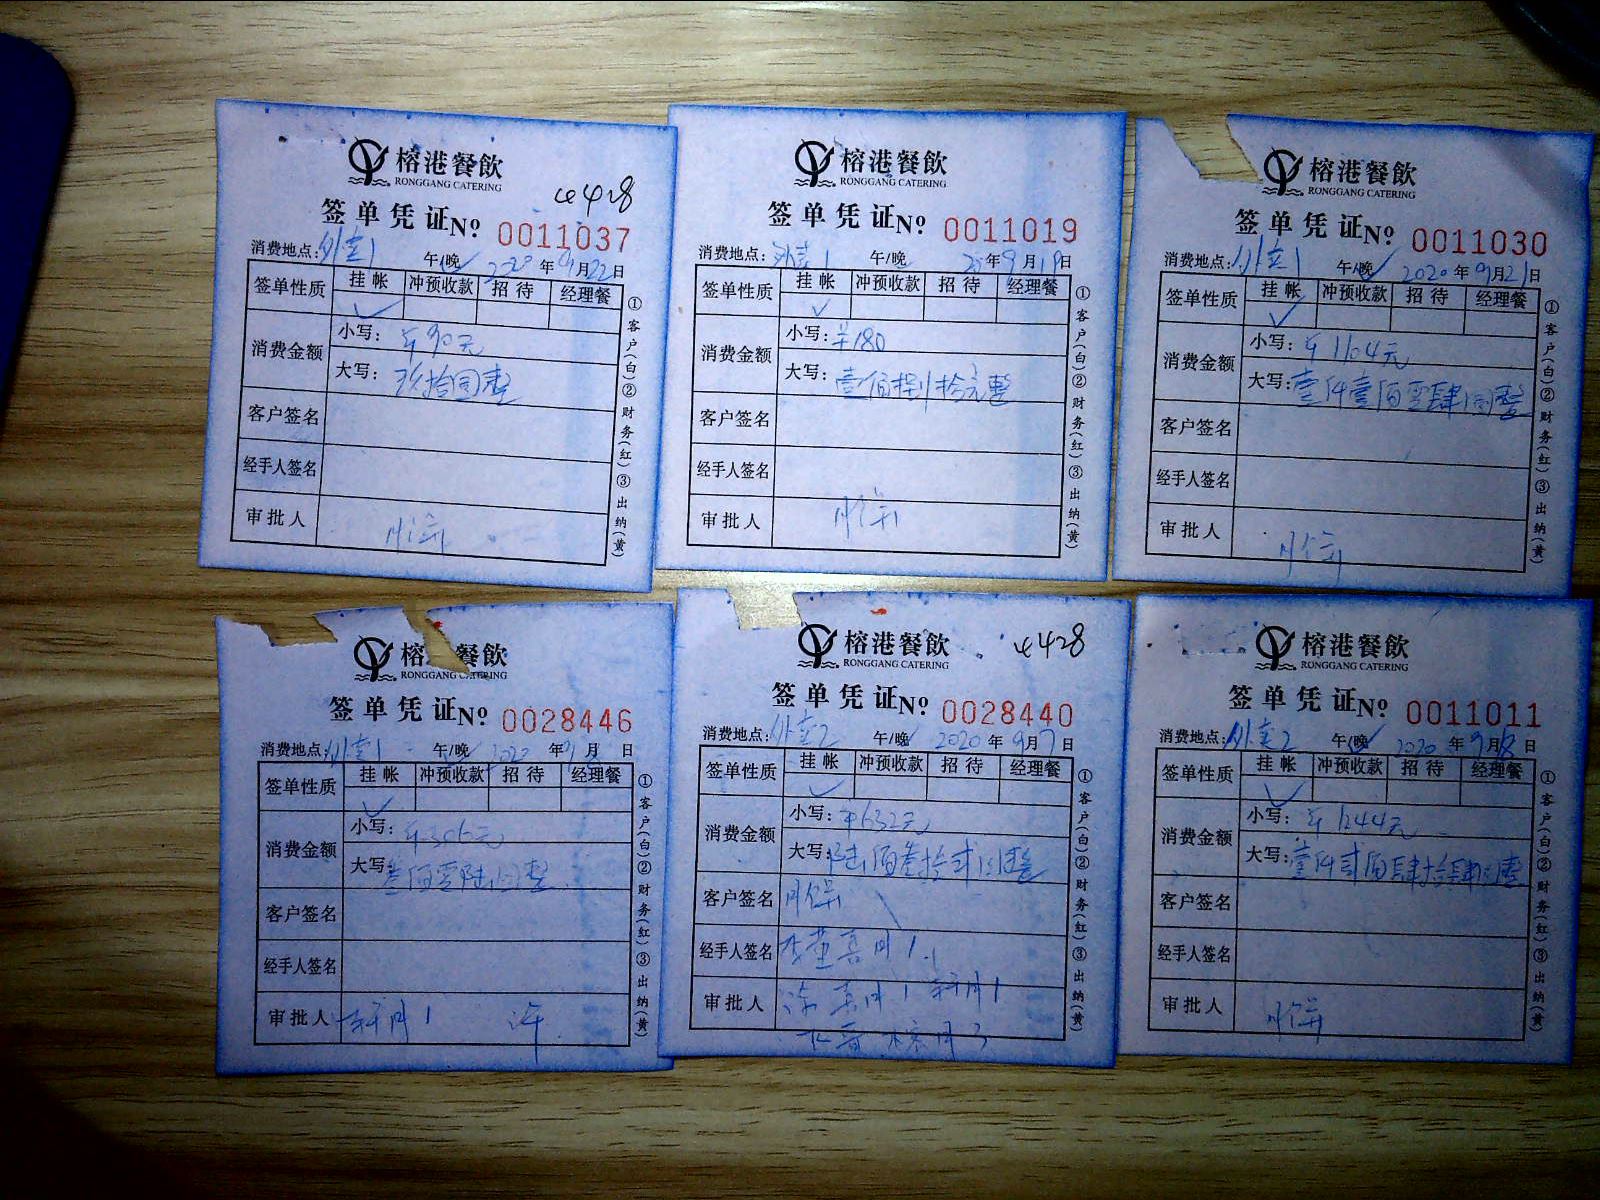 榕港餐飲
RONGGANG CATERING
4428
签单凭证 No 0011037
消费地点: 外卖1 午/晚 2020年9月22日
签单性质 挂帐 冲预收款 招待 经理餐
消费金额 小写: ¥90元
大写: 玖拾圆整
客户签名
经手人签名
审批人 月饼
①客户(白)②财务(红)③出纳(黄)
榕港餐飲
RONGGANG CATERING
签单凭证 No 0011019
消费地点: 外卖1 午/晚 20年9月19日
签单性质 挂帐 冲预收款 招待 经理餐
消费金额 小写: ¥180
大写: 壹佰捌拾元整
客户签名
经手人签名
审批人 月饼
①客户(白)②财务(红)③出纳(黄)
榕港餐飲
RONGGANG CATERING
签单凭证 No 0011030
消费地点: 外卖1 午/晚 2020年9月21日
签单性质 挂帐 冲预收款 招待 经理餐
消费金额 小写: ¥1104元
大写: 壹仟壹佰零肆圆整
客户签名
经手人签名
审批人 月饼
①客户(白)②财务(红)③出纳(黄)
榕 餐飲
RONGGANG CATERING
签单凭证 No 0028446
消费地点: 外卖1 午/晚 2020年9月8日
签单性质 挂帐 冲预收款 招待 经理餐
消费金额 小写: ¥306元
大写: 叁佰零陆圆整
客户签名
经手人签名
审批人
①客户(白)②财务(红)③出纳(黄)
榕港餐飲
RONGGANG CATERING
4428
签单凭证 No 0028440
消费地点: 外卖2 午/晚 2020年9月7日
签单性质 挂帐 冲预收款 招待 经理餐
消费金额 小写: ¥632元
大写: 陆佰叁拾贰圆整
客户签名 月饼
经手人签名
审批人
①客户(白)②财务(红)③出纳(黄)
榕港餐飲
RONGGANG CATERING
签单凭证 No 0011011
消费地点: 外卖2 午/晚 2020年9月18日
签单性质 挂帐 冲预收款 招待 经理餐
消费金额 小写: ¥1244元
大写: 壹仟贰佰肆拾肆圆整
客户签名
经手人签名
审批人 月饼
①客户(白)②财务(红)③出纳(黄)